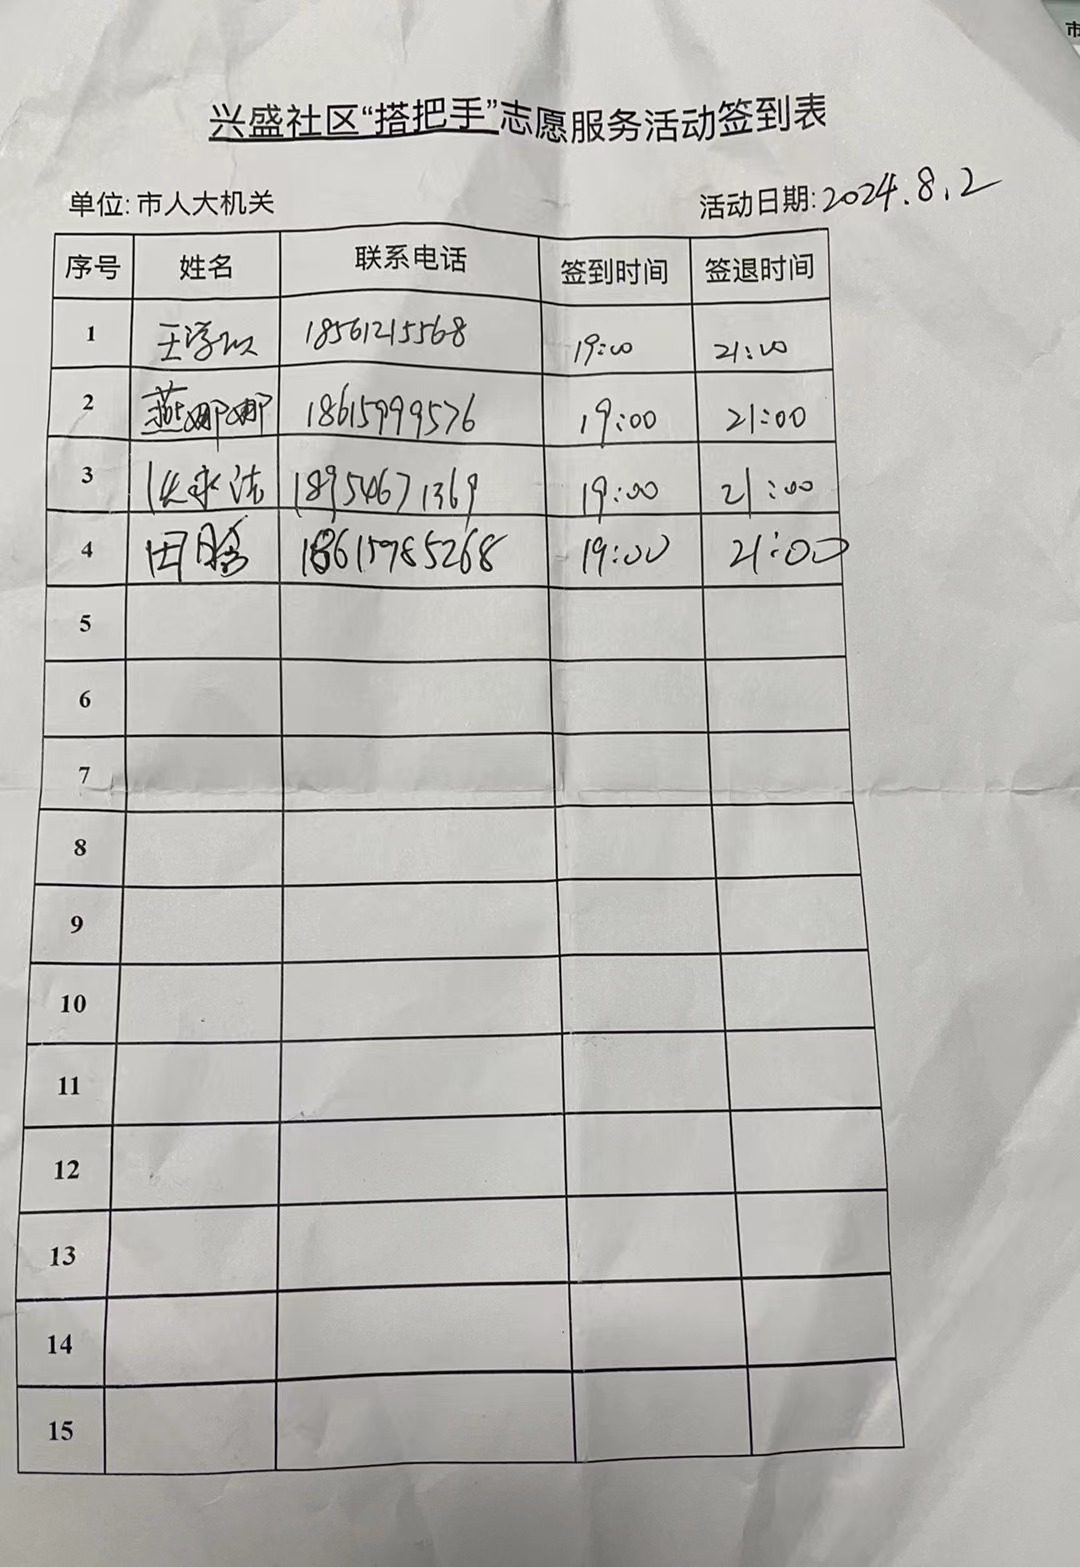 市
兴盛社区“搭把手”志愿服务活动签到表
单位: 市人大机关 活动日期: 2024.8.2
序号 姓名 联系电话 签到时间 签退时间
1 王 18561215568 19:00 21:00
2 燕娜娜 18615999576 19:00 21:00
3 张永法 18954671369 19:00 21:00
4 田鹏 18615985268 19:00 21:00
5
6
7
8
9
10
11
12
13
14
15